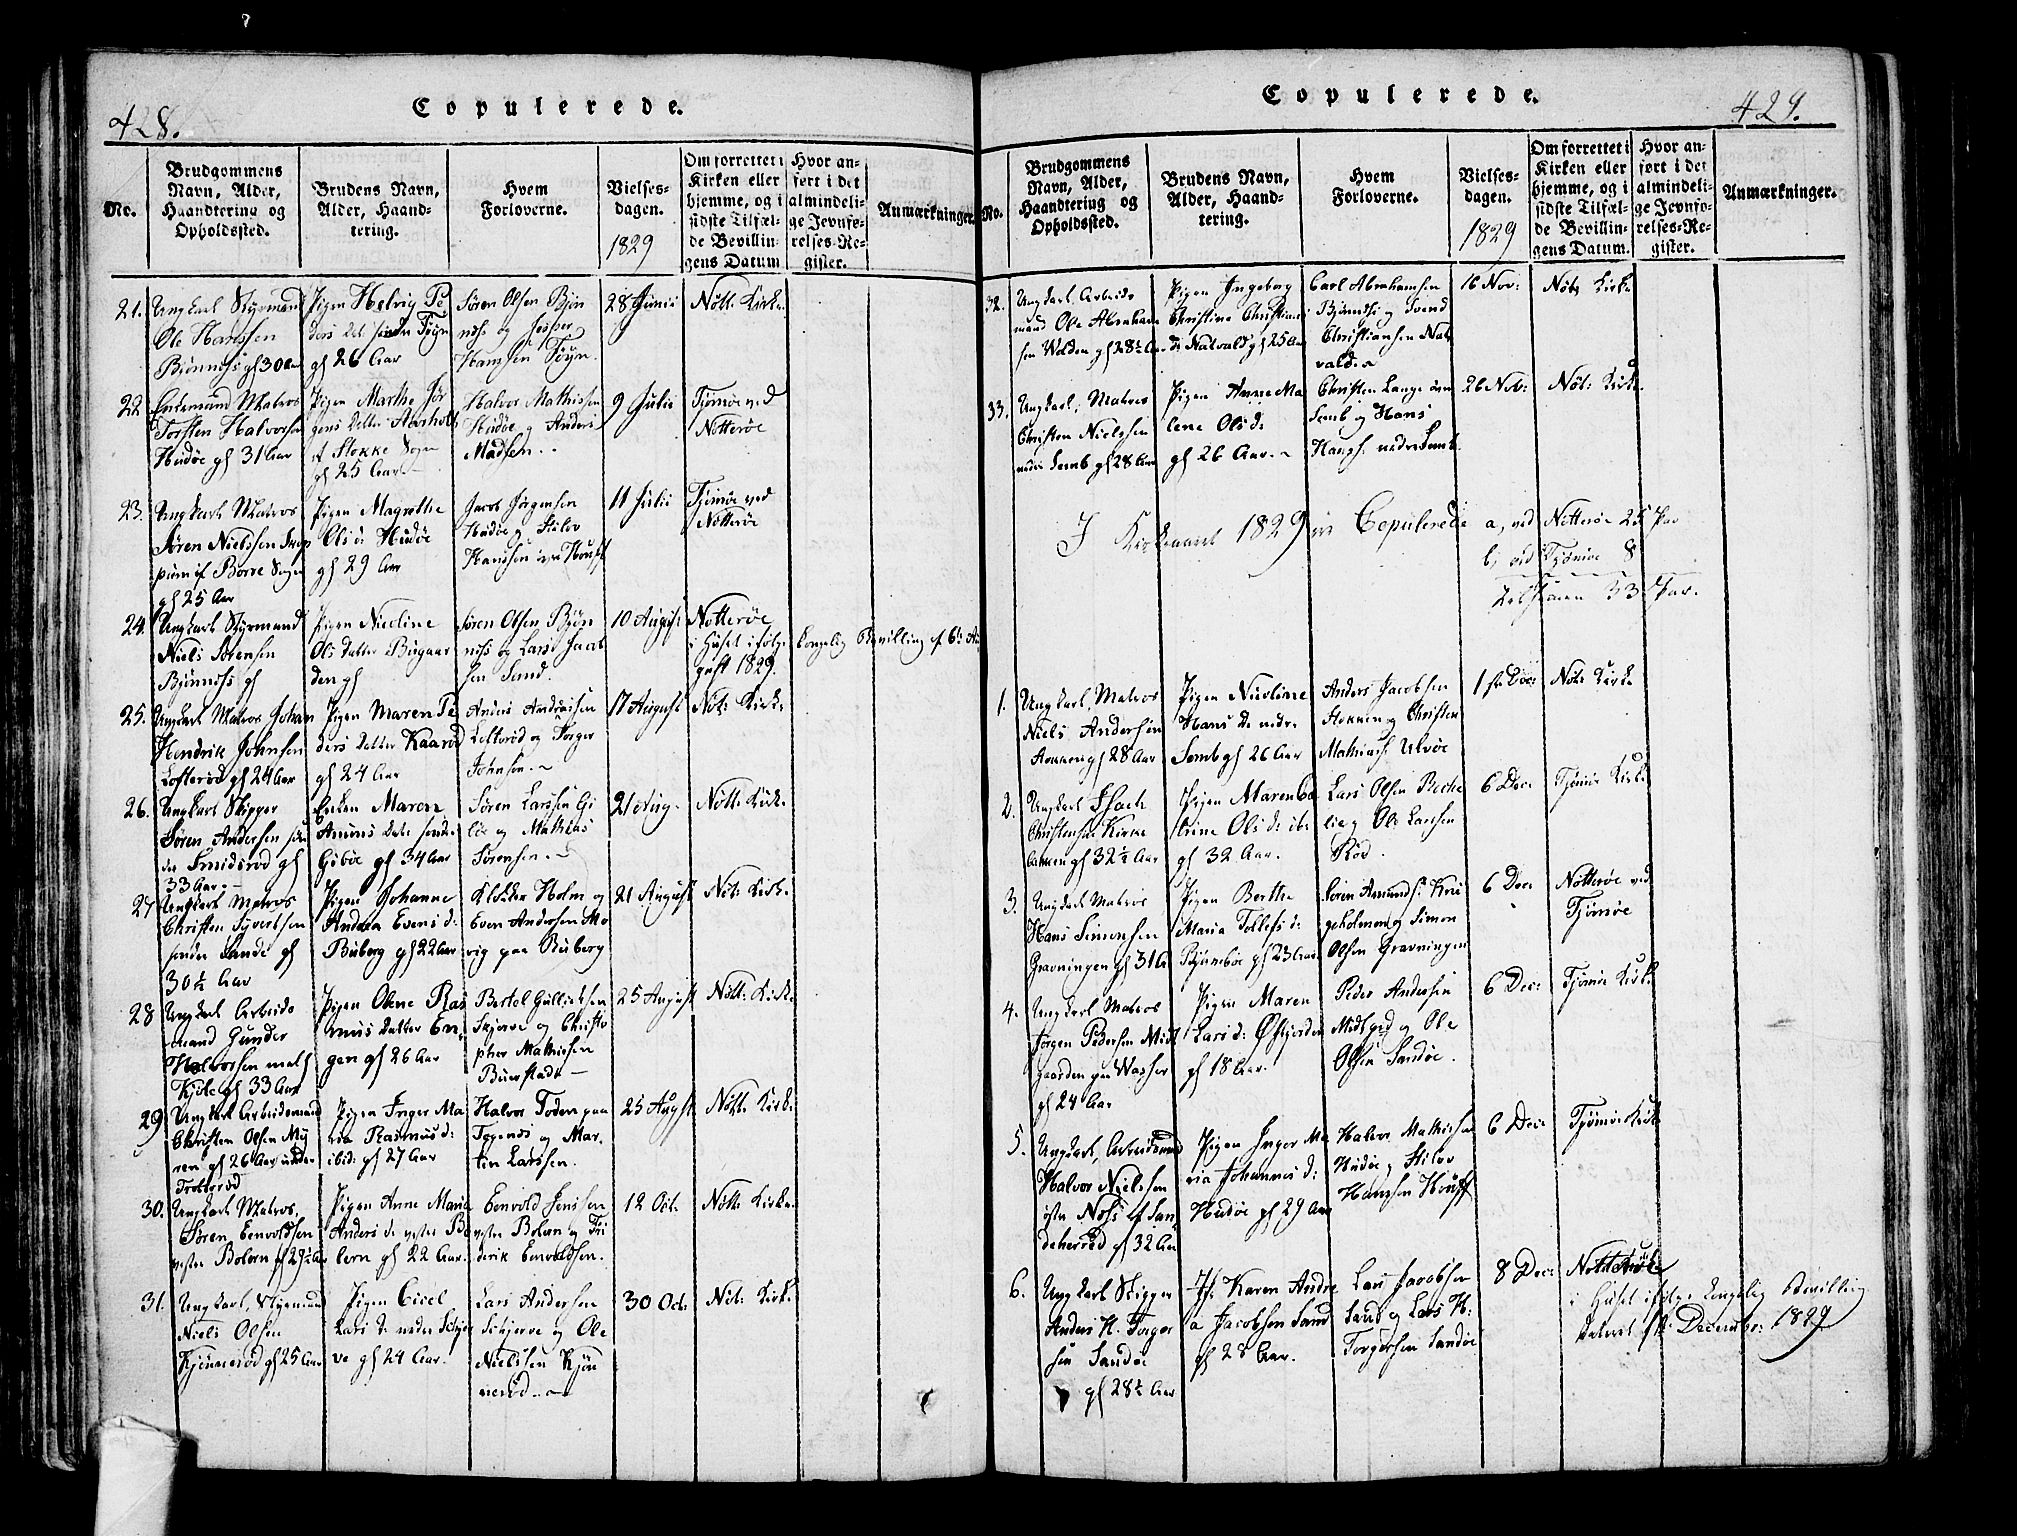 428.
Copulerede.
No.
Brudgommens
Navn, Alder,
Haandtering og
Opholdssted.
Brudens Navn,
Alder, Haand-
tering.
Hvem
Forloverne.
Vielses-
dagen.
1829
Om forrettet i
Kirken eller
hjemme, og i
sidste Tilfæl-
de Bevillin-
gens Datum
Hvor an-
ført i det
almindeli-
ge Jevnfø-
relses-Re-
gister.
Anmærkninger.
21.
Ungkarl Styrmand
Ole Hanssen
Bjønnes gl 30 Aar
Pigen Helvig Pe
ders Dat søndre Føyn
gl 26 Aar
Søren Olsen Bjøn
nes og Jesper
Hanssen Føyn.
28 Junii
Nött: Kirke.
22
Enkemand Matros
Torsten Halvorsen
Hudøe gl 31 Aar
Pigen Marthe Jør
gens Datter Aarholt
af Stokke Sogn
gl 25 Aar
Halvor Mathissen
Hudøe og Anders
Madsen.
9 Julii
Tjömöe ved
Nötteröe
23.
Ungkarl Matros
Søren Nielssen
af Borre Sogn
gl 25 Aar
Pigen Magrethe
Ols d: Hudøe
gl 29 Aar
Jacob Jørgensen
Hudøe og
Hanssen
11 Julii
Tjömöe ved
Nötteröe
24.
Ungkarl Styrmand
Niels Sørensen
Bjønnes gl
Pigen Nicoline
Ols Datter Bugaar
den gl
Søren Olsen Bjøn
nes og Lars Jacob
sen Sand.
10 August
Nötteröe
i Huset ifølge Kongelig Bevilling af 6te Au
gust 1829.
25.
Ungkarl Matros Johan
Hendrik Johnsen
Lofterød gl 24 Aar
Pigen Maren Pe
ders Datter Kaarød
gl 24 Aar
Anders Andreasen
Lofterød og Torger
Johnsen.
17 August
Nöt: Kirke
26.
Ungkarl Skipper
Søren Andersen søn
dre Smidsrød gl
33 Aar.
Enken Maren
Amunds Dater søndre
Gipøe gl 34 Aar
Søren Larssen Gi
øe og Mathias
Sørensen.
21 Aug.
Nött: Kirke.
27
Ungkarl Matros
Christen Syvertsen
søndre Sande gl
30½ Aar
Pigen Johanne
Andrea Evens d:
Buberg gl 22 Aar
Klokker Holm og
Even Andersen Mo
vig paa Buberg
21 August
Nöt: Kirke.
28
Ungkarl Arbeids
mand Gunder
Halvorsen
Kjøle gl 33 Aar
Pigen Olene Ras
mus Datter En
gen gl 26 Aar
Bertol Gulliksen
Skjerve og Christo
pher Mathissen
Buerstad
25 August
Nött: Kirke.
29
Ungkarl Arbeidsmand
Christen Olsen My
ren gl 26 Aar under
Trotterød
Pigen Inger Ma
ria Rasmus d:
ibid: gl 27 Aar
Halvor Foden paa
Tegenes og Mar
tin Larssen.
25 Augst
Nött: Kirke.
30.
Ungkarl Matros,
Søren Eenvoldsen
vestre Bolern gl 29½ Aar
Pigen Anne Maria
Anders d: vestre Bo
lern gl 22 Aar.
Eenvold Jenssen
vestre Bolern og Fri
derik Eenvoldsen.
12 Oct.
Nött: Kirke.
31.
Ungkarl, Styrmand
Niels Olsen
Kjønnerød gl 25 Aar
Pigen Cicel
Lars d: nedre Skjer
ve gl 24 Aar.
Lars Andersen
Skjerve og Ole
Nielssen Kjøn
nerød.
30 Oct:
Nöt: Kirke.
Copulerede.
429.
No.
Brudgommens
Navn, Alder,
Haandtering og
Opholdssted.
Brudens Navn,
Alder, Haand-
tering.
Hvem
Forloverne.
Vielses-
dagen.
1829
Om forrettet i
Kirken eller
hjemme, og i
sidste Tilfæl-
de Bevillin-
gens Datum.
Hvor an-
ført i det
almindeli-
ge Jevnfø-
relses-Re-
gister.
Anmærkninger.
32.
Ungkarl Arbeids
mand Ole Abraham
sen Wolden gl 28½ Aar
Pigen Ingeborg
Christine Christians
d: Natvald gl 25 Aar
Carl Abrahamsen
Bjønnes og Svend
Christiansen Nat
vald.
16 Nov:
Nöt: Kirke
33.
Ungkarl, Matros
Christen Nielssen
nedre Semb gl 28 Aar
Pigen Anne Ma
lene Ols d:
gl 26 Aar.
Christen Lange øvre
Semb og Hans
Hanss. nedre Semb.
26 Nob:
Nöt: Kirke.
I Kirkeaaret 1829 er Copulerede a, ved Nötteröe 25 Par
b, ved Tjömöe 8
tilsammen 33 Par.
1.
Ungkarl, Matros
Niels Andersen
gl 28 Aar
Pigen Nicoline
Hans D: nedre
Semb gl 26 Aar
Anders Jacobsen
og Christen
Mathiass. Ulvøe
1ste Dec:
Nöt: Kirke
2.
Ungkarl Isach
Christensen Kirke
bakken gl 32½ Aar
Pigen Maren Ca
trine Ols d: ibi
gl 32 Aar.
Lars Olsen Becke
lie og Ole Larssen
Rød.
6 Dec:
Tjömöe Kirke
3.
Ungkarl Matros
Hans Simonsen
Gravningen gl 31 A
Pigen Berthe
Maria Tollefs d:
gl 23 Aar.
Søren Amunds. Krü
geholmen og Simon
Olsen Gravningen
6 Dec:
Nötteröe ved
Tjömöe
4.
Ungkarl Matros
Jørgen Pedersen Midt
gaarden paa Wasser
gl 24 Aar
Pigen Maren
Lars d: Østjorden
gl 18 Aar.
Peder Andersen
Midtgrd og Ole
Olsen Sandøe.
6 Dec:
Tjömöe Kirke.
5.
Ungkarl, Arbeidsmand
Halvor Nielssen
østre Nøss af San
deherred gl 32 Aar
Pigen Inger Ma
ria Johannes d:
Hudøe gl 29 Aar
Halvor Mathissen
Hudøe og
Hanssen
6 Dec:
Tjömöe Kirke
6.
Ungkarl Skipper
Anders H. Torger
sen Sandøe
gl 28½ Aar
Jfr. Karen Andre
a Jacobsen Sand
gl 28 Aar.
Lars Jacobsen
Sand og Lars H:
Torgersen Sandøe
8 Dec:
Nötteröe
i Huset ifølge Kongelig Bevilling
dateret 1ste December 1829